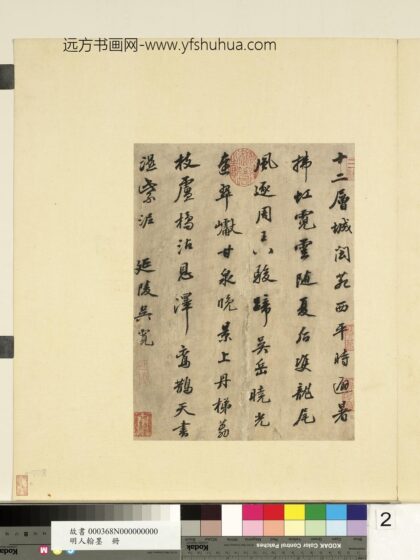 远方书画网-www.yfshuhua.com
十二層城閬苑西平時避暑
拂虹霓雲隨夏后雙龍尾
風逐周王八駿蹄吳岳曉光
連翠巘甘泉晚景上丹梯荔
枝盧橘沾恩澤鸞鵲天書
濕紫泥 延陵吳寬
故書 000368N000000000
明人翰墨 冊
KODAK Color Control Patches
2